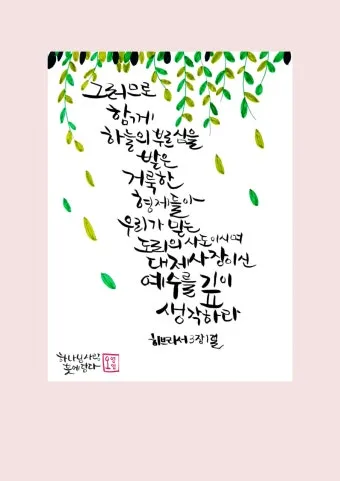 그러므로
함께
하늘의 부르심을
받은
거룩한
형제들아
우리가 믿는
도리의 사도이시며
대제사장이신
예수를 깊이
생각하라
히브리서 3장 1절
하나님사랑
꽃에담다